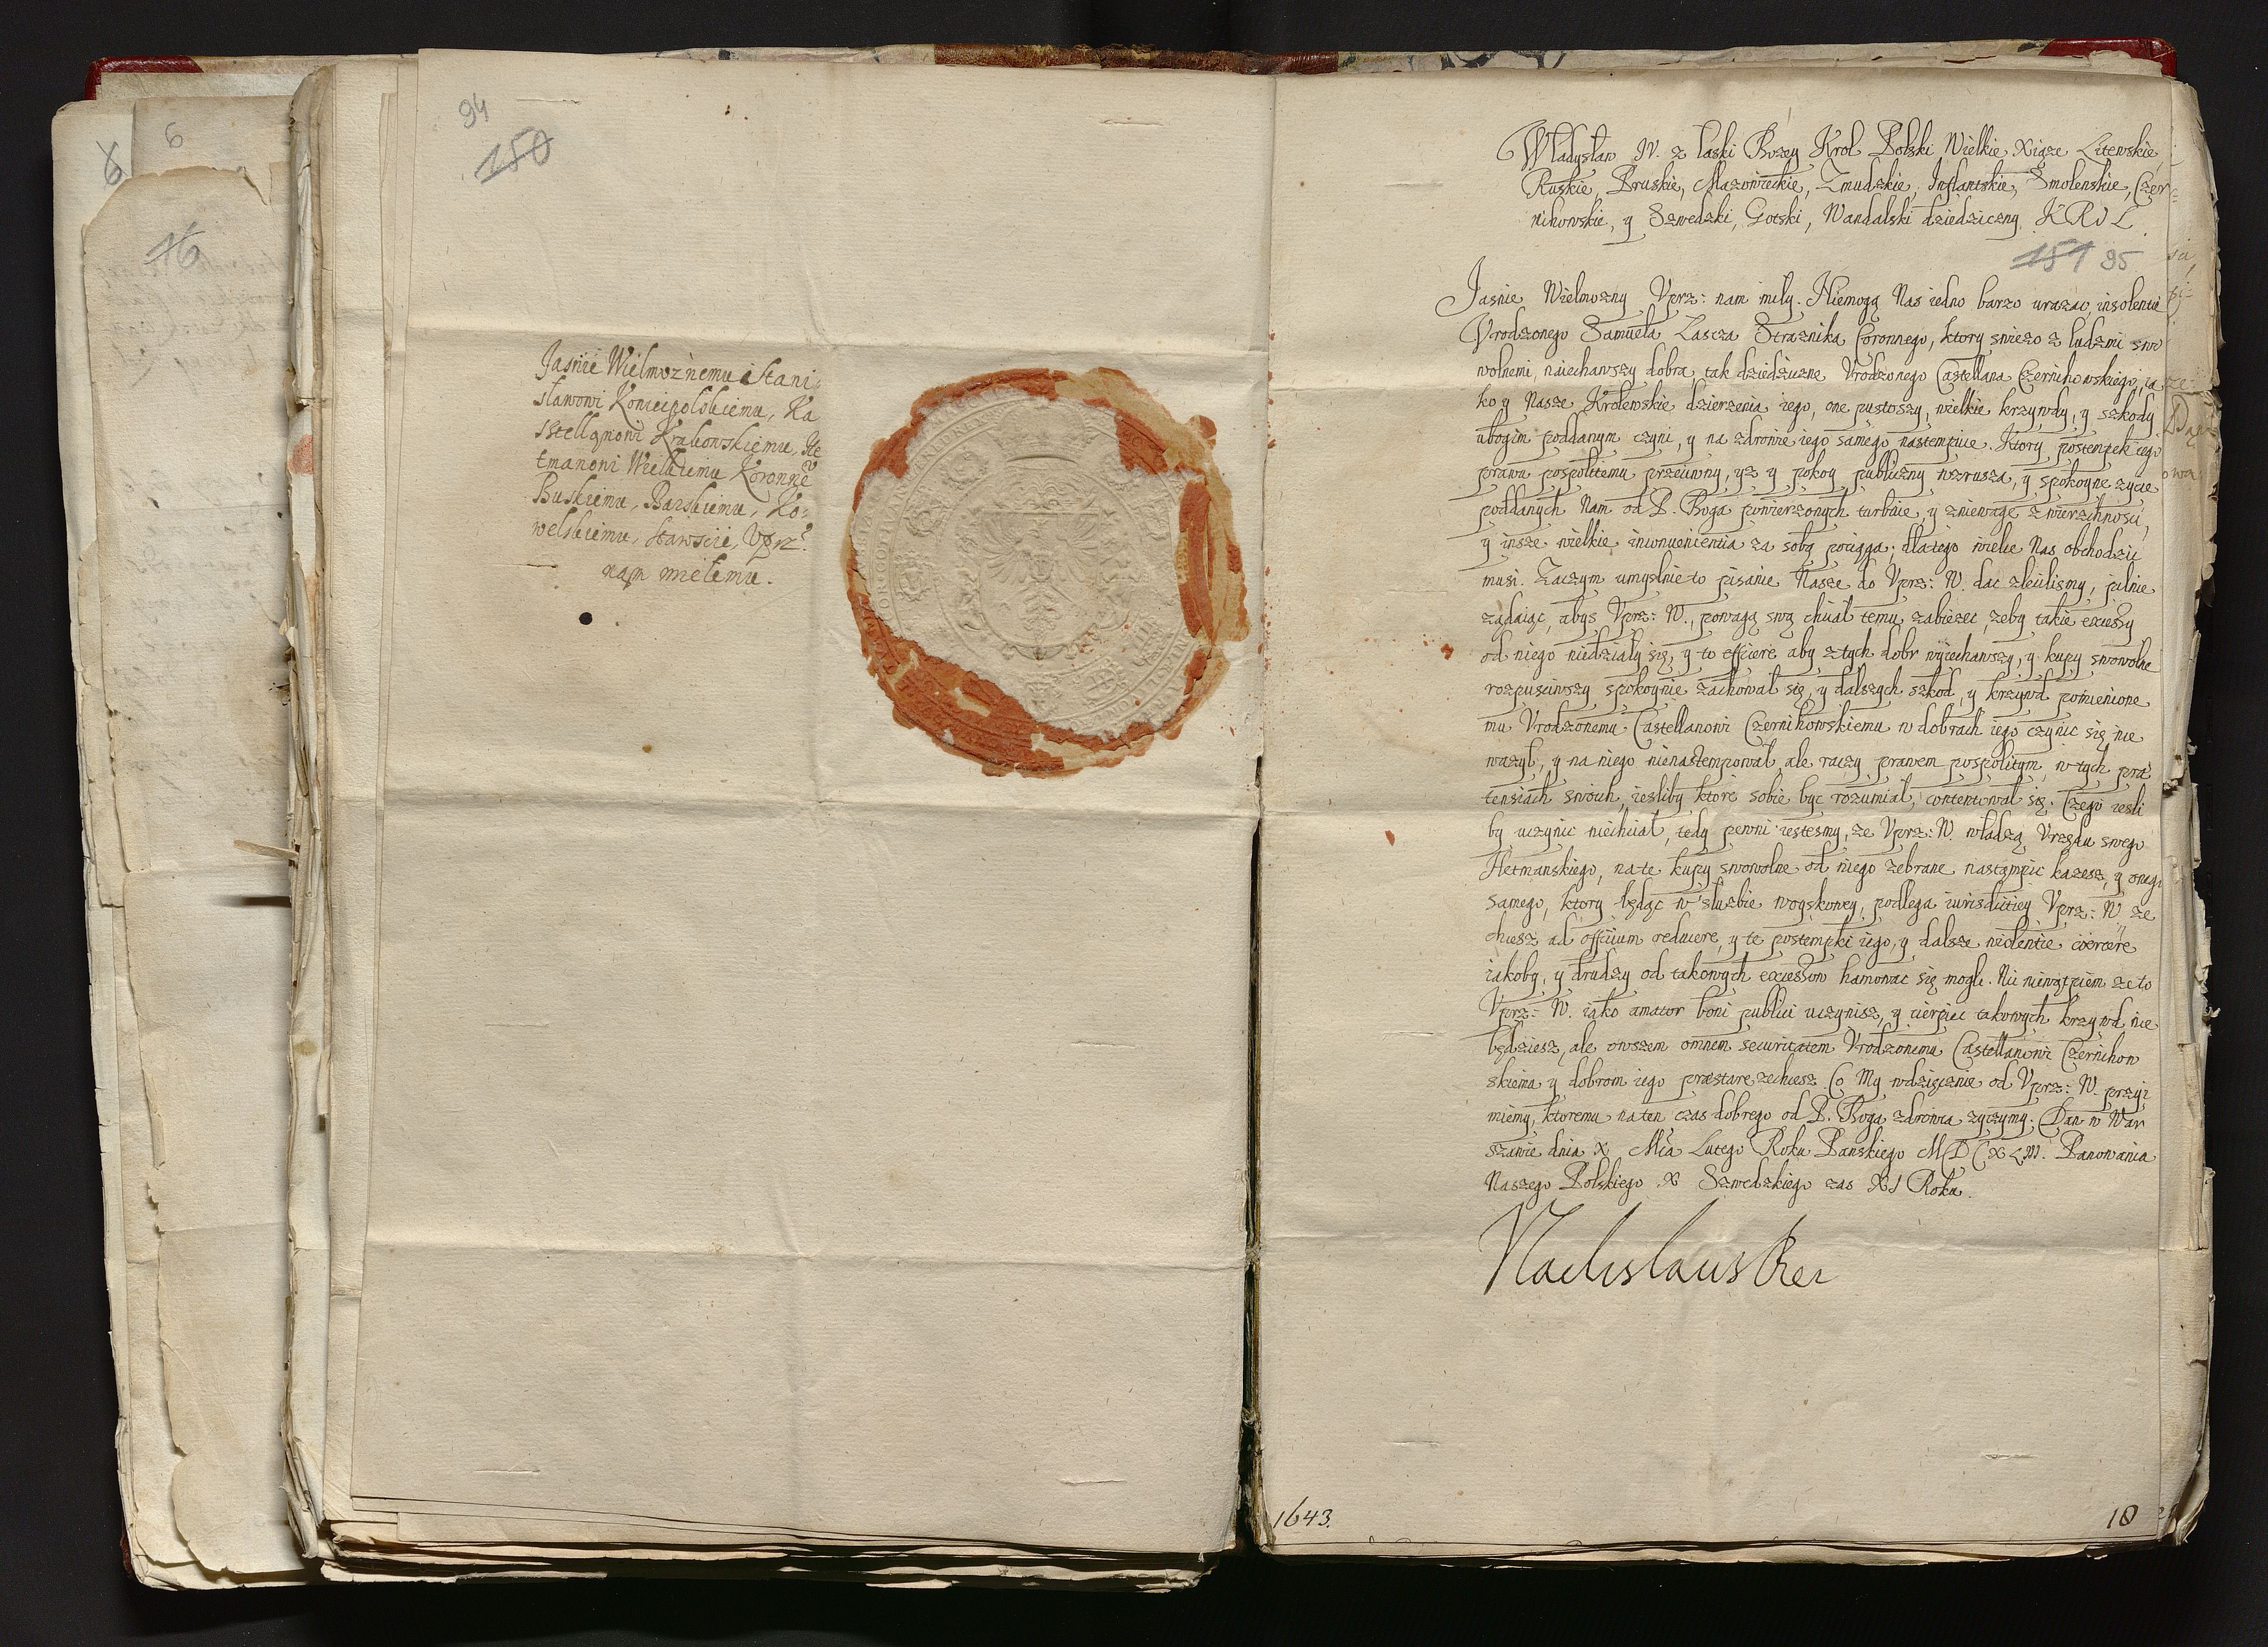 6
6
16
94
150
Jasnie Wielmoznemu Stani-
slawowi Koniecpolskiemu, Ka
stellanowi Krakowskiemu, He
tmanowi Wielkiemu Koronne
Buskiemu, Barskiemu, Ko-
welskiemu, Staroscie, Uprz:
nam milemu.
Wladyslaw IV. z laski Bozey Krol Polski Wielkie Xiąze Litewskie,
Ruskie, Pruskie, Mazowieckie, Zmudzkie, Inflantskie, Smolenskie, Czer-
nihowskie, y Szwedzki, Gotski, Wandalski dziedziczny KROL.
151 95
Jasnie Wielmozny Vprz: nam mily. Niemogą Nas iedno barzo urazac insolentie
Vrodzonego Samuela Lascza Straznika Coronnego, ktory swiezo z ludzmi swo
wolnemi, naiechawszy dobra, tak dziedziczne Vrodzonego Castellana Czernihowskiego, ia
ko y Nasze Krolewskie dzierzenia iego, one pustoszy, wielkie krzywdy, y szkody
ubogim poddanym czyni, y na zdrowie iego samego nastempuie. Ktory postempek iego
prawu pospolitemu przeciwny, yz y pokoy publiczny wzrusza, y spokoyne zycie
poddanych Nam od P. Boga powierzonych turbuie, y zniewagę zwierzchnosci,
y insze wielkie inconuenientia za sobą pociąga; dlatego wielce Nas obchodzic
musi. Zaczym umyslnie to pisanie Nasze do Vprz: W. dac zlecilismy, pilnie
ządaiąc, abys Vprz: W., powagą swą chcial temu zabiezec, zeby takie excessy
od niego niedzialy się, y to efficere aby z tych dobr wyiechawszy, y kupy swowolne
rozpusciwszy spokoynie zachowal się, y dalszych szkod, y krzywd pomienione
mu Vrodzonemu Castellanowi Czernihowskiemu w dobrach iego czynic się nie
wazyl, y na niego nienastempowal, ale raczy prawem pospolitym, w tych præ
tensiach swoich, iesliby ktore sobie byc rozumial, contentowal się. Czego iesli
by uczynic niechcial, tedy pewni iestesmy, ze Vprz: W. wladzą Vrzędu swego
Hetmanskiego, na te kupy swowolne od niego zebrane nastąmpic kazesz, y onego
samego, ktory będąc w sluzbie woyskowey, podlega iurisdictiey Vprz: W. ze
chcesz ad officium reducere, y te postempki iego, y dalsze violentie coercere
iakoby, y drudzy od takowych excessow hamowac się mogli. Nic niewątpiem ze to
Vprz: W. iako amator boni publici uczynisz, y cierpiec takowych krzywd nie
będziesz, ale owszem omnem securitatem Vrodzonemu Castellanowi Czernihow
skiemu y dobrom iego præstare zechcesz. Co My wdzięcznie od Vprz: W. przyi
miemy, ktoremu na ten czas dobrego od P. Boga zdrowia zyczymy. Dan w War
szawie dnia X Mca Lutego Roku Panskiego MDCXLIII. Panowania
Naszego Polskiego X Szwedzkiego zas XI Roku.
Vladislaus Rex
1643.
10